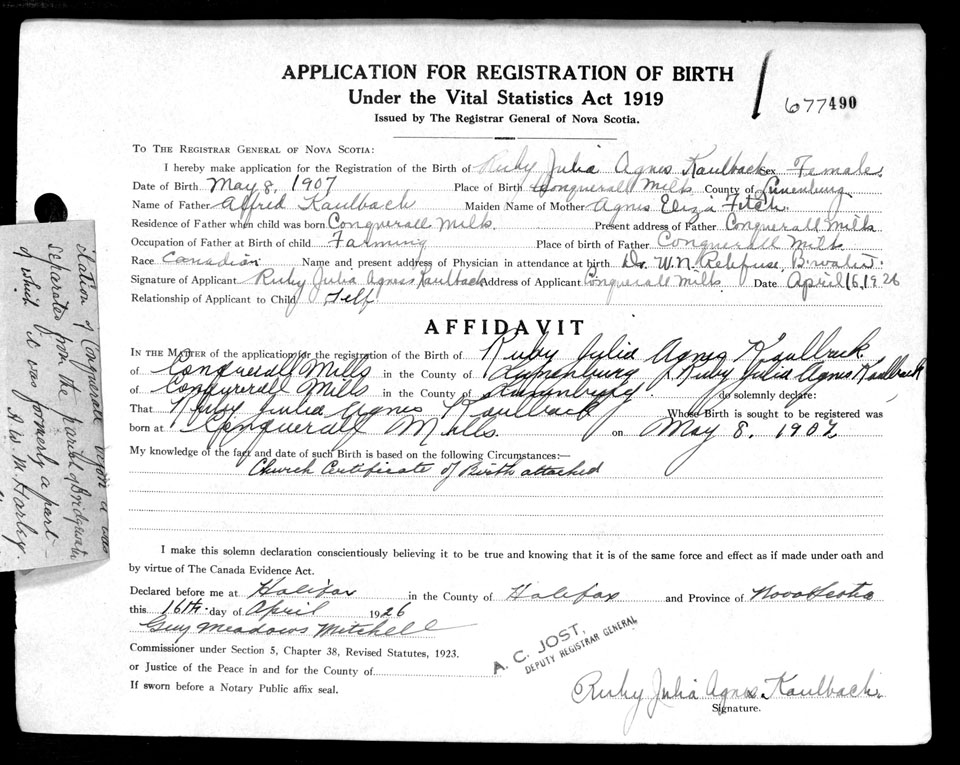 APPLICATION FOR REGISTRATION OF BIRTH
Under the Vital Statistics Act 1919
Issued by The Registrar General of Nova Scotia.
677490
To The Registrar General of Nova Scotia:
I hereby make application for the Registration of the Birth of Ruby Julia Agnes Kaulback Sex Female
Date of Birth May 8, 1907 Place of Birth Conquerall Mills County of Lunenburg
Name of Father Alfred Kaulback Maiden Name of Mother Agnes Eliza Fetch
Residence of Father when child was born Conquerall Mills. Present address of Father Conquerall Mills
Occupation of Father at Birth of child Farming Place of birth of Father Conquerall Mills
Race Canadian Name and present address of Physician in attendance at birth Dr. W. N. Rehfuse, B.water.
Signature of Applicant Ruby Julia Agnes Kaulback Address of Applicant Conquerall Mills Date April 16, 1926
Relationship of Applicant to Child Self
AFFIDAVIT
In the Matter of the application for the registration of the Birth of Ruby Julia Agnes Kaulback
of Conquerall Mills in the County of Lunenburg I, Ruby Julia Agnes Kaulback
of Conquerall Mills in the County of Lunenburg do solemnly declare:
That Ruby Julia Agnes Kaulback Whose Birth is sought to be registered was
born at Conquerall Mills. on May 8, 1907
My knowledge of the fact and date of such Birth is based on the following Circumstances:—
Church Certificate of Birth attached
I make this solemn declaration conscientiously believing it to be true and knowing that it is of the same force and effect as if made under oath and
by virtue of The Canada Evidence Act.
Declared before me at Halifax in the County of Halifax and Province of Nova Scotia
this 16th day of April 1926
Guy Meadows Mitchell
Commissioner under Section 5, Chapter 38, Revised Statutes, 1923.
or Justice of the Peace in and for the County of
If sworn before a Notary Public affix seal.
A. C. JOST,
DEPUTY REGISTRAR GENERAL
Ruby Julia Agnes Kaulback.
Signature.
of Conquerall was
separated from the parish of Bridgewater
of which it was formerly a part
A W M Harley